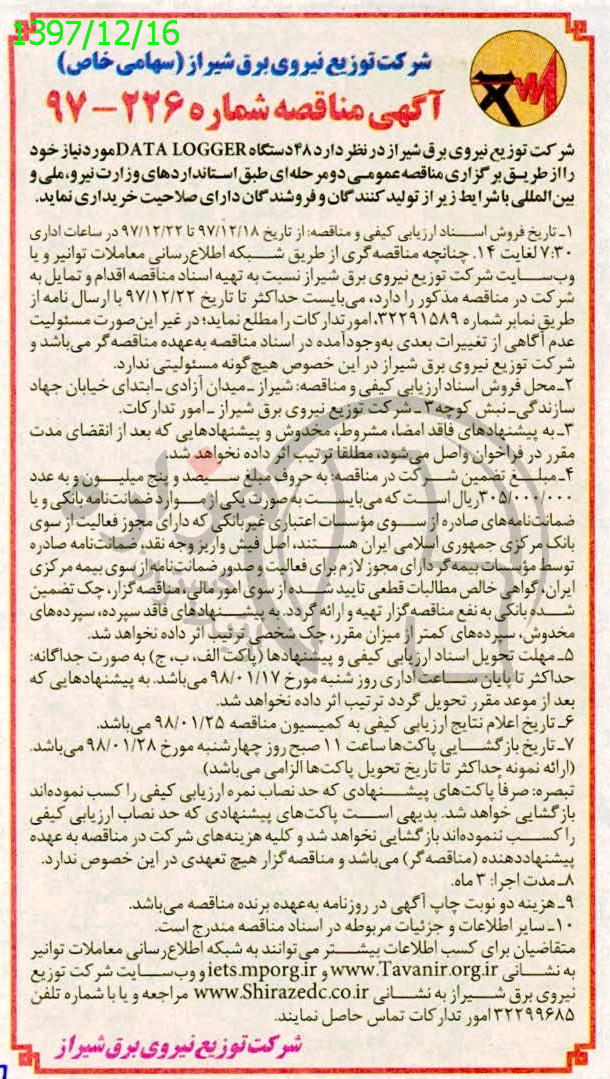 1397/12/16
شرکت توزیع نیروی برق شیراز (سهامی خاص)
آگهی مناقصه شماره ۲۲۶-۹۷
شرکت توزیع نیروی برق شیراز در نظر دارد ۴۸ دستگاه DATA LOGGER مورد نیاز خود
را از طریق برگزاری مناقصه عمومی دو مرحله‌ای طبق استانداردهای وزارت نیرو، ملی و
بین المللی با شرایط زیر از تولید کنندگان و فروشندگان دارای صلاحیت خریداری نماید.
۱ـ تاریخ فروش اسناد ارزیابی کیفی و مناقصه: از تاریخ ۹۷/۱۲/۱۸ تا ۹۷/۱۲/۲۲ در ساعات اداری
۷:۳۰ لغایت ۱۴. چنانچه مناقصه‌گری از طریق شبکه اطلاع‌رسانی معاملات توانیر و یا
وب‌سایت شرکت توزیع نیروی برق شیراز نسبت به تهیه اسناد مناقصه اقدام و تمایل به
شرکت در مناقصه مذکور را دارد، می‌بایست حداکثر تا تاریخ ۹۷/۱۲/۲۲ با ارسال نامه از
طریق نمابر شماره ۳۲۲۹۱۵۸۹، امور تدارکات را مطلع نماید؛ در غیر این‌صورت مسئولیت
عدم آگاهی از تغییرات بعدی به‌وجودآمده در اسناد مناقصه به‌عهده مناقصه‌گر می‌باشد و
شرکت توزیع نیروی برق شیراز در این خصوص هیچ‌گونه مسئولیتی ندارد.
۲ـ محل فروش اسناد ارزیابی کیفی و مناقصه: شیراز ـ میدان آزادی ـ ابتدای خیابان جهاد
سازندگی ـ نبش کوچه ۳ ـ شرکت توزیع نیروی برق شیراز ـ امور تدارکات.
۳ـ به پیشنهادهای فاقد امضا، مشروط، مخدوش و پیشنهادهایی که بعد از انقضای مدت
مقرر در فراخوان واصل می‌شود، مطلقا ترتیب اثر داده نخواهد شد.
۴ـ مبلغ تضمین شرکت در مناقصه: به حروف مبلغ سیصد و پنج میلیون و به عدد
۳۰۵/۰۰۰/۰۰۰ ریال است که می‌بایست به صورت یکی از موارد ضمانت‌نامه بانکی و یا
ضمانت‌نامه‌های صادره از سوی مؤسسات اعتباری غیربانکی که دارای مجوز فعالیت از سوی
بانک مرکزی جمهوری اسلامی ایران هستند، اصل فیش واریز وجه نقد، ضمانت‌نامه صادره
توسط مؤسسات بیمه‌گر دارای مجوز لازم برای فعالیت و صدور ضمانت‌نامه از سوی بیمه مرکزی
ایران، گواهی خالص مطالبات قطعی تایید شده از سوی امور مالی، مناقصه گزار، چک تضمین
شده بانکی به نفع مناقصه‌گزار تهیه و ارائه گردد. به پیشنهادهای فاقد سپرده، سپرده‌های
مخدوش، سپرده‌های کمتر از میزان مقرر، چک شخصی ترتیب اثر داده نخواهد شد.
۵ـ مهلت تحویل اسناد ارزیابی کیفی و پیشنهادها (پاکت الف، ب، ج) به صورت جداگانه:
حداکثر تا پایان ساعت اداری روز شنبه مورخ ۹۸/۰۱/۱۷ می‌باشد. به پیشنهادهایی که
بعد از موعد مقرر تحویل گردد ترتیب اثر داده نخواهد شد.
۶ـ تاریخ اعلام نتایج ارزیابی کیفی به کمیسیون مناقصه ۹۸/۰۱/۲۵ می‌باشد.
۷ـ تاریخ بازگشایی پاکت‌ها ساعت ۱۱ صبح روز چهارشنبه مورخ ۹۸/۰۱/۲۸ می‌باشد.
(ارائه نمونه حداکثر تا تاریخ تحویل پاکت‌ها الزامی می‌باشد)
تبصره: صرفاً پاکت‌های پیشنهادی که حد نصاب نمره ارزیابی کیفی را کسب نموده‌اند
بازگشایی خواهد شد. بدیهی است پاکت‌های پیشنهادی که حد نصاب ارزیابی کیفی
را کسب ننموده‌اند بازگشایی نخواهد شد و کلیه هزینه‌های شرکت در مناقصه به عهده
پیشنهاددهنده (مناقصه‌گر) می‌باشد و مناقصه‌گزار هیچ تعهدی در این خصوص ندارد.
۸ـ مدت اجرا: ۳ ماه.
۹ـ هزینه دو نوبت چاپ آگهی در روزنامه به‌عهده برنده مناقصه می‌باشد.
۱۰ـ سایر اطلاعات و جزئیات مربوطه در اسناد مناقصه مندرج است.
متقاضیان برای کسب اطلاعات بیشتر می‌توانند به شبکه اطلاع‌رسانی معاملات توانیر
به نشانی www.Tavanir.org.ir و iets.mporg.ir و وب‌سایت شرکت توزیع
نیروی برق شیراز به نشانی www.Shirazedc.co.ir مراجعه و یا با شماره تلفن
۳۲۲۹۹۶۸۵ امور تدارکات تماس حاصل نمایند.
شرکت توزیع نیروی برق شیراز